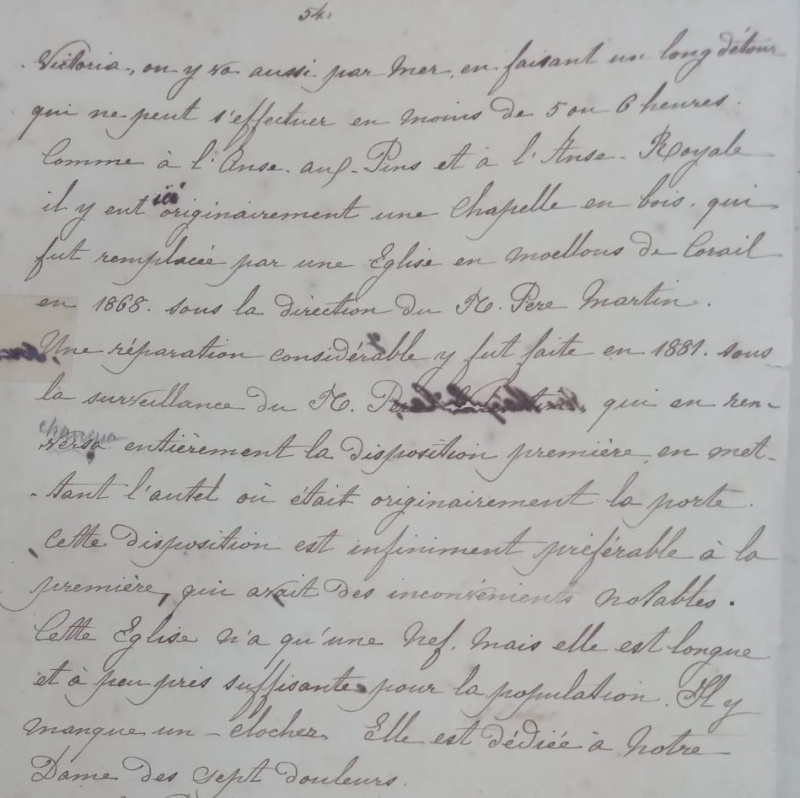 54.
Victoria, on y va aussi par mer, en faisant un long détour
qui ne peut s'effectuer en moins de 5 ou 6 heures.
Comme à l'Anse-aux-Pins et à l'Anse-Royale
il y eut ici originairement une chapelle en bois, qui
fut remplacée par une Eglise en moellons de Corail
en 1868. sous la direction du R. Père Martin.
Une réparation considérable y fut faite en 1881. sous
la surveillance du R. Père qui en ren-
changea
versa entièrement la disposition première, en met-
-tant l'autel où était originairement la porte.
Cette disposition est infiniment préférable à la
première, qui avait des inconvénients notables.
Cette Eglise n'a qu'une Nef. mais elle est longue
et à peu près suffisante pour la population. Il y
manque un clocher. Elle est dédiée à Notre
Dame des sept douleurs.